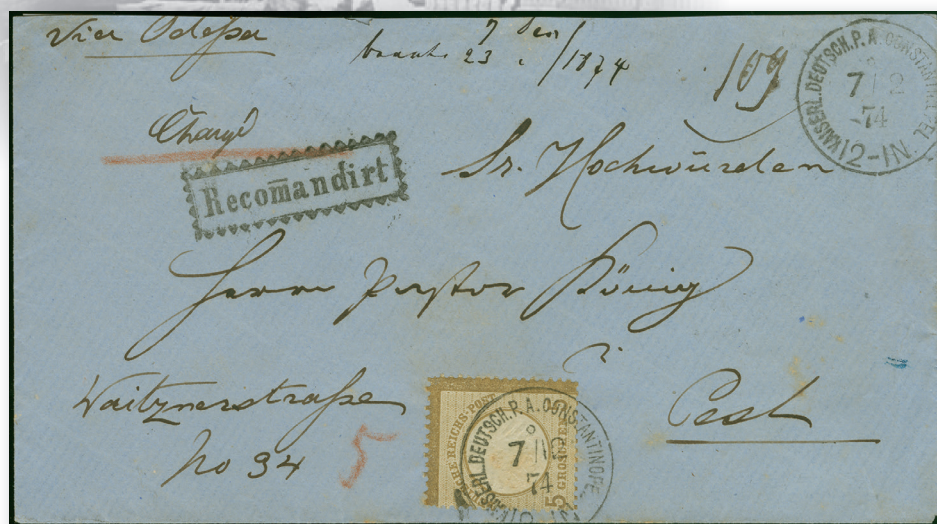 Via Odessa
7 Dec
23 /1874
109
KAISERL. DEUTSCH. P. A. CONSTANTINOPEL
7 12
74
12-1N.
Chargé
Recomandirt
Sr. Hochwürden
Herrn Pastor König
Pest
Waitznerstraße
No 34
5
SCHE REICHS-POST
5 GROSCHEN
KAISERL. DEUTSCH. P. A. CONSTANTINOPE
7
74